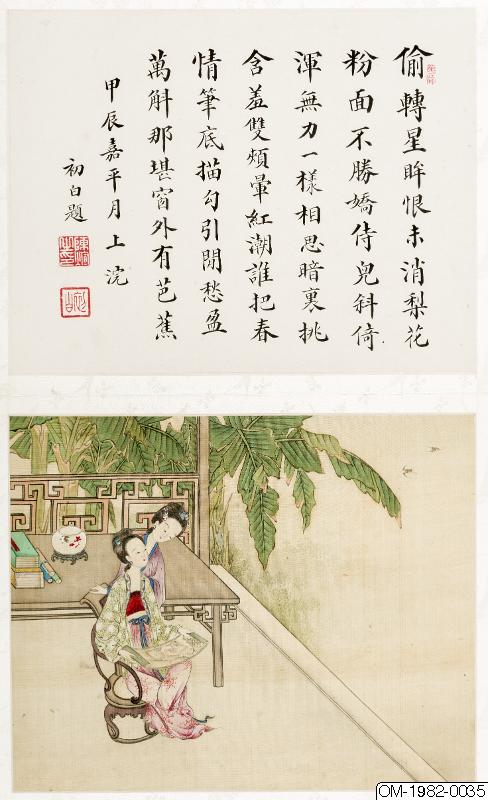 偷轉星眸恨未消梨花
粉面不勝嬌侍兒斜倚
渾無力一樣相思暗裏挑
含羞雙頰暈紅潮誰把春
情筆底描勾引閒愁盈
萬斛那堪窗外有芭蕉
甲辰嘉平月上浣
初白題
OM-1982-0035